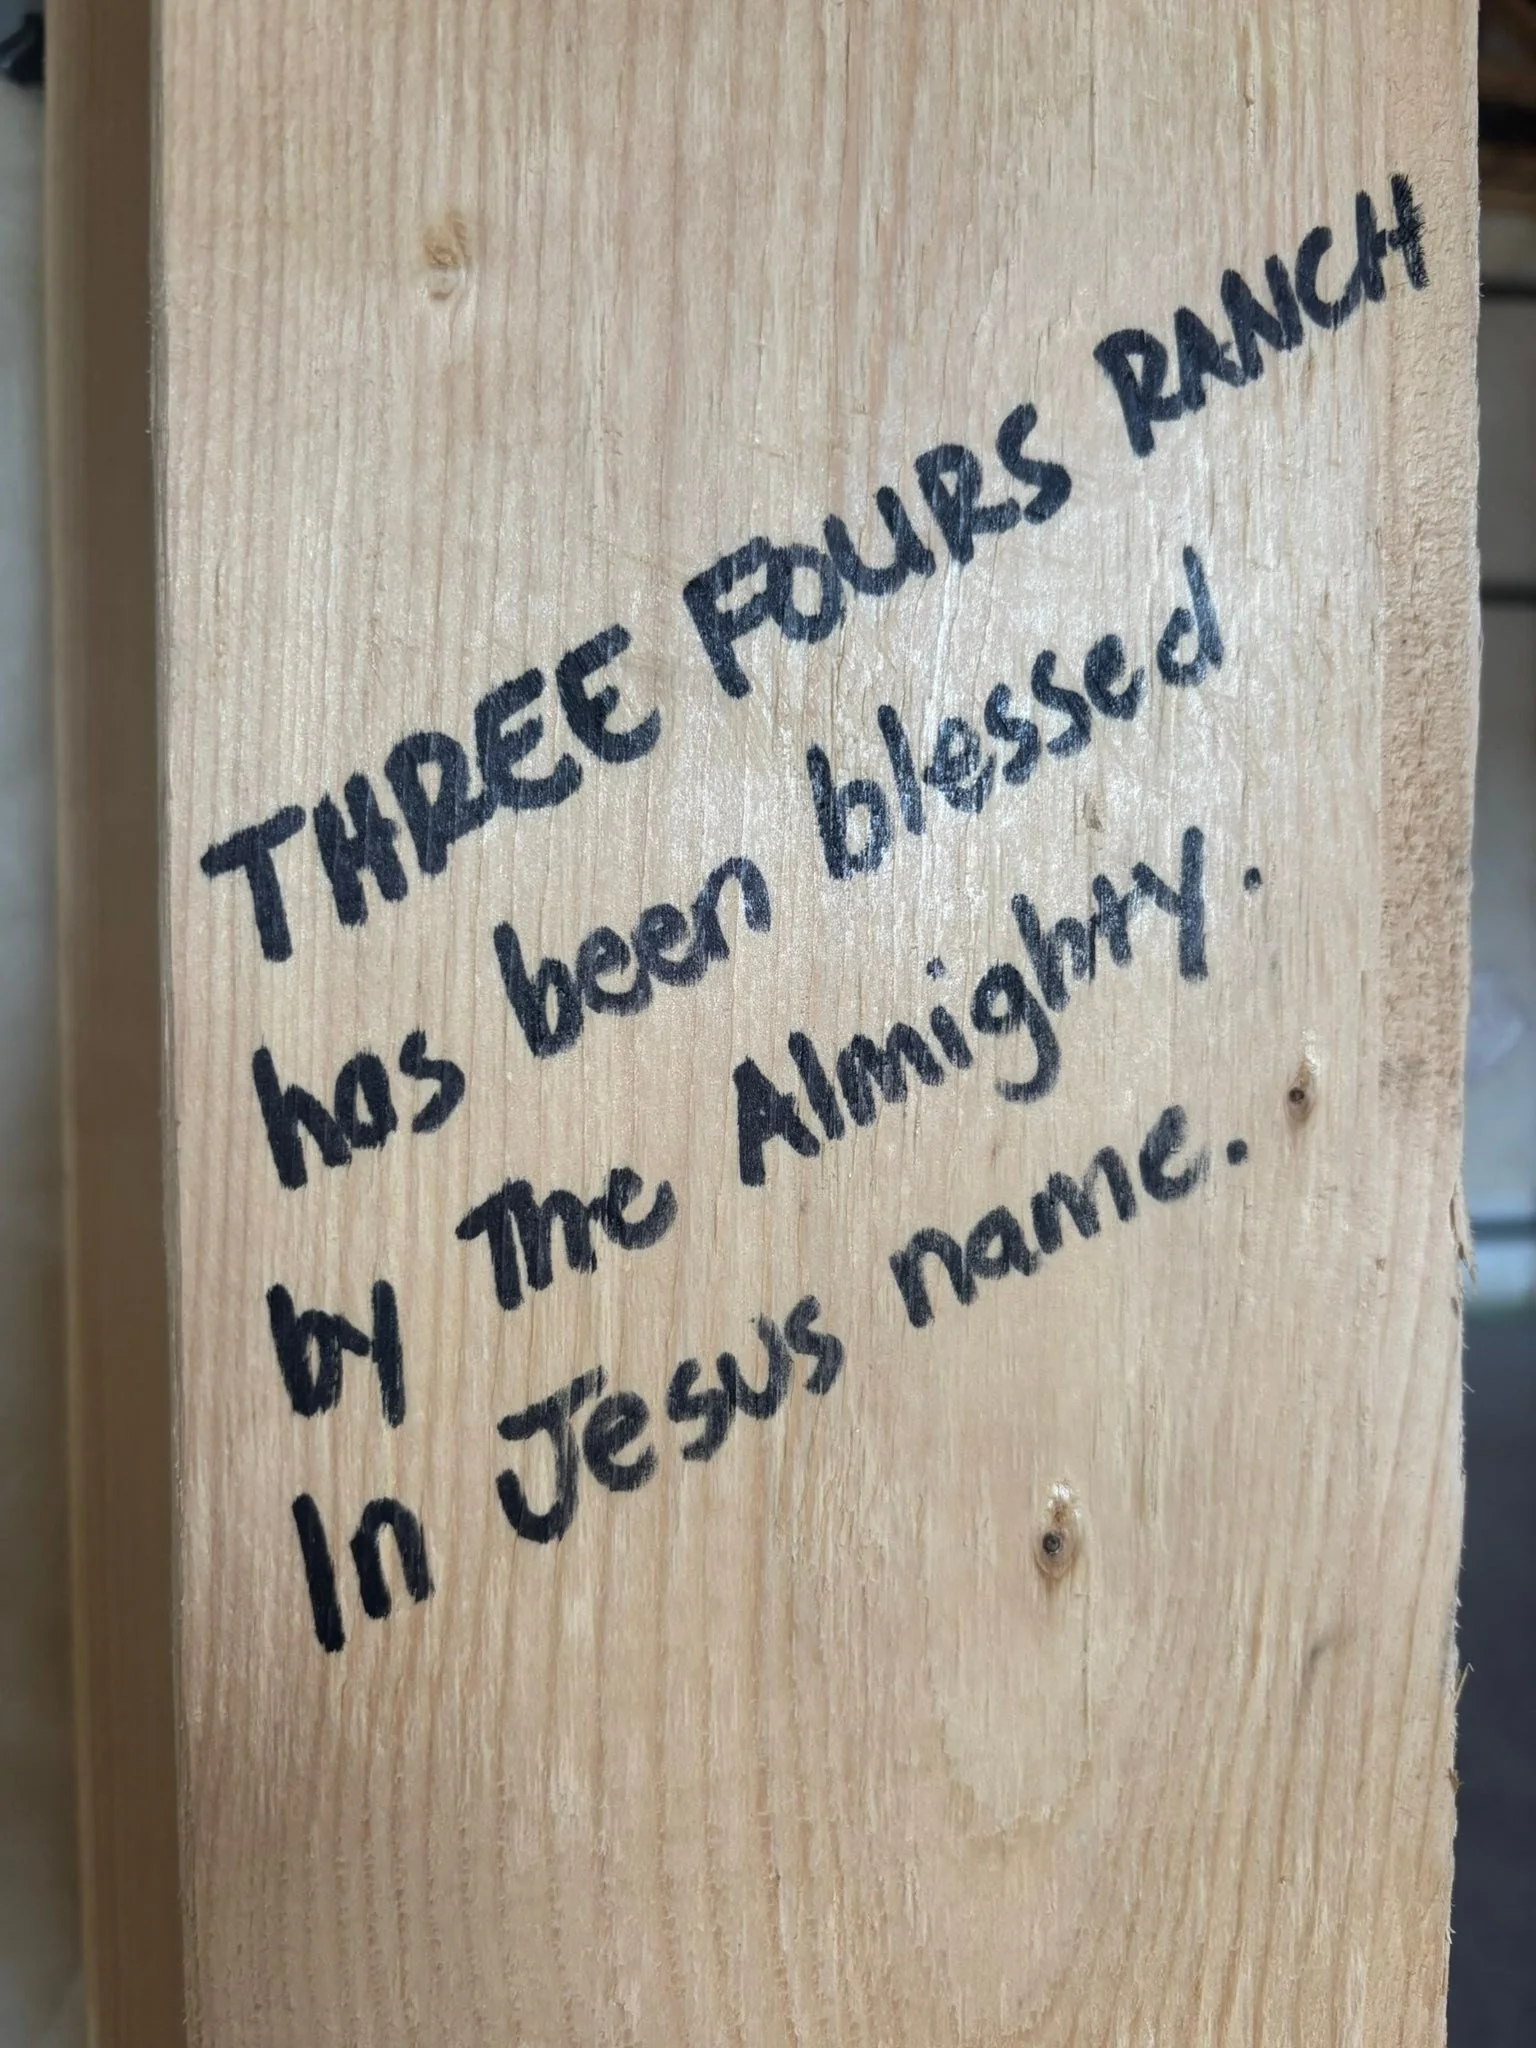 THREE FOURS RANCH
has been blessed
by The Almighty.
In Jesus name.